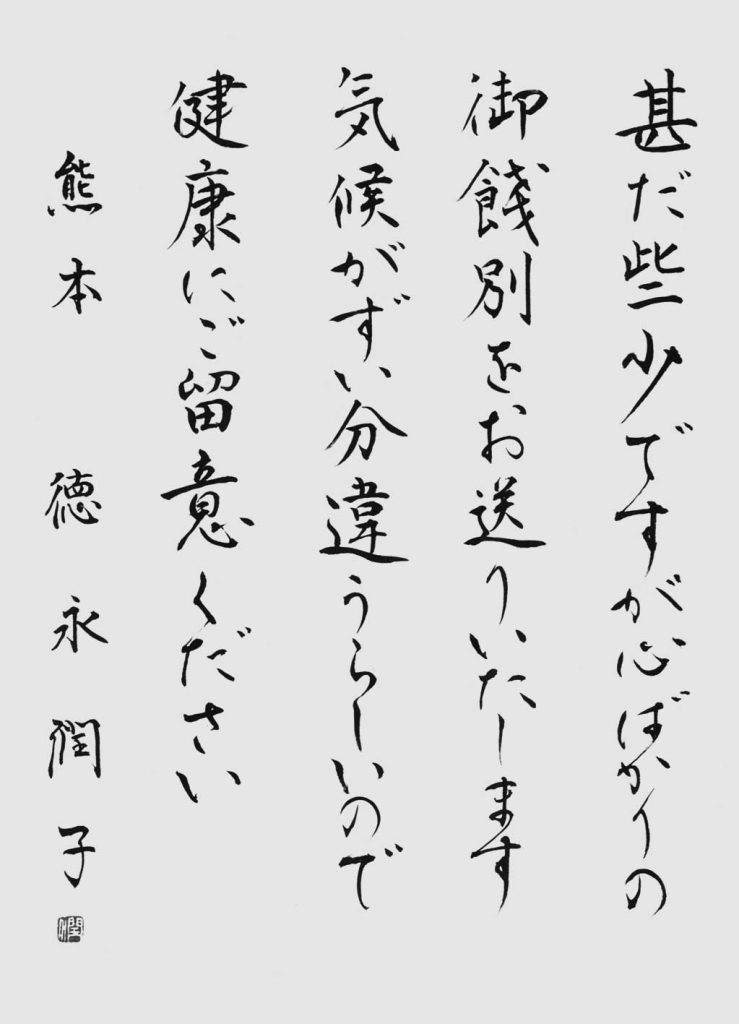 甚だ些少ですが心ばかりの
御餞別をお送りいたします
気候がずい分違うらしいので
健康にご留意ください
熊本 徳永潤子
潤